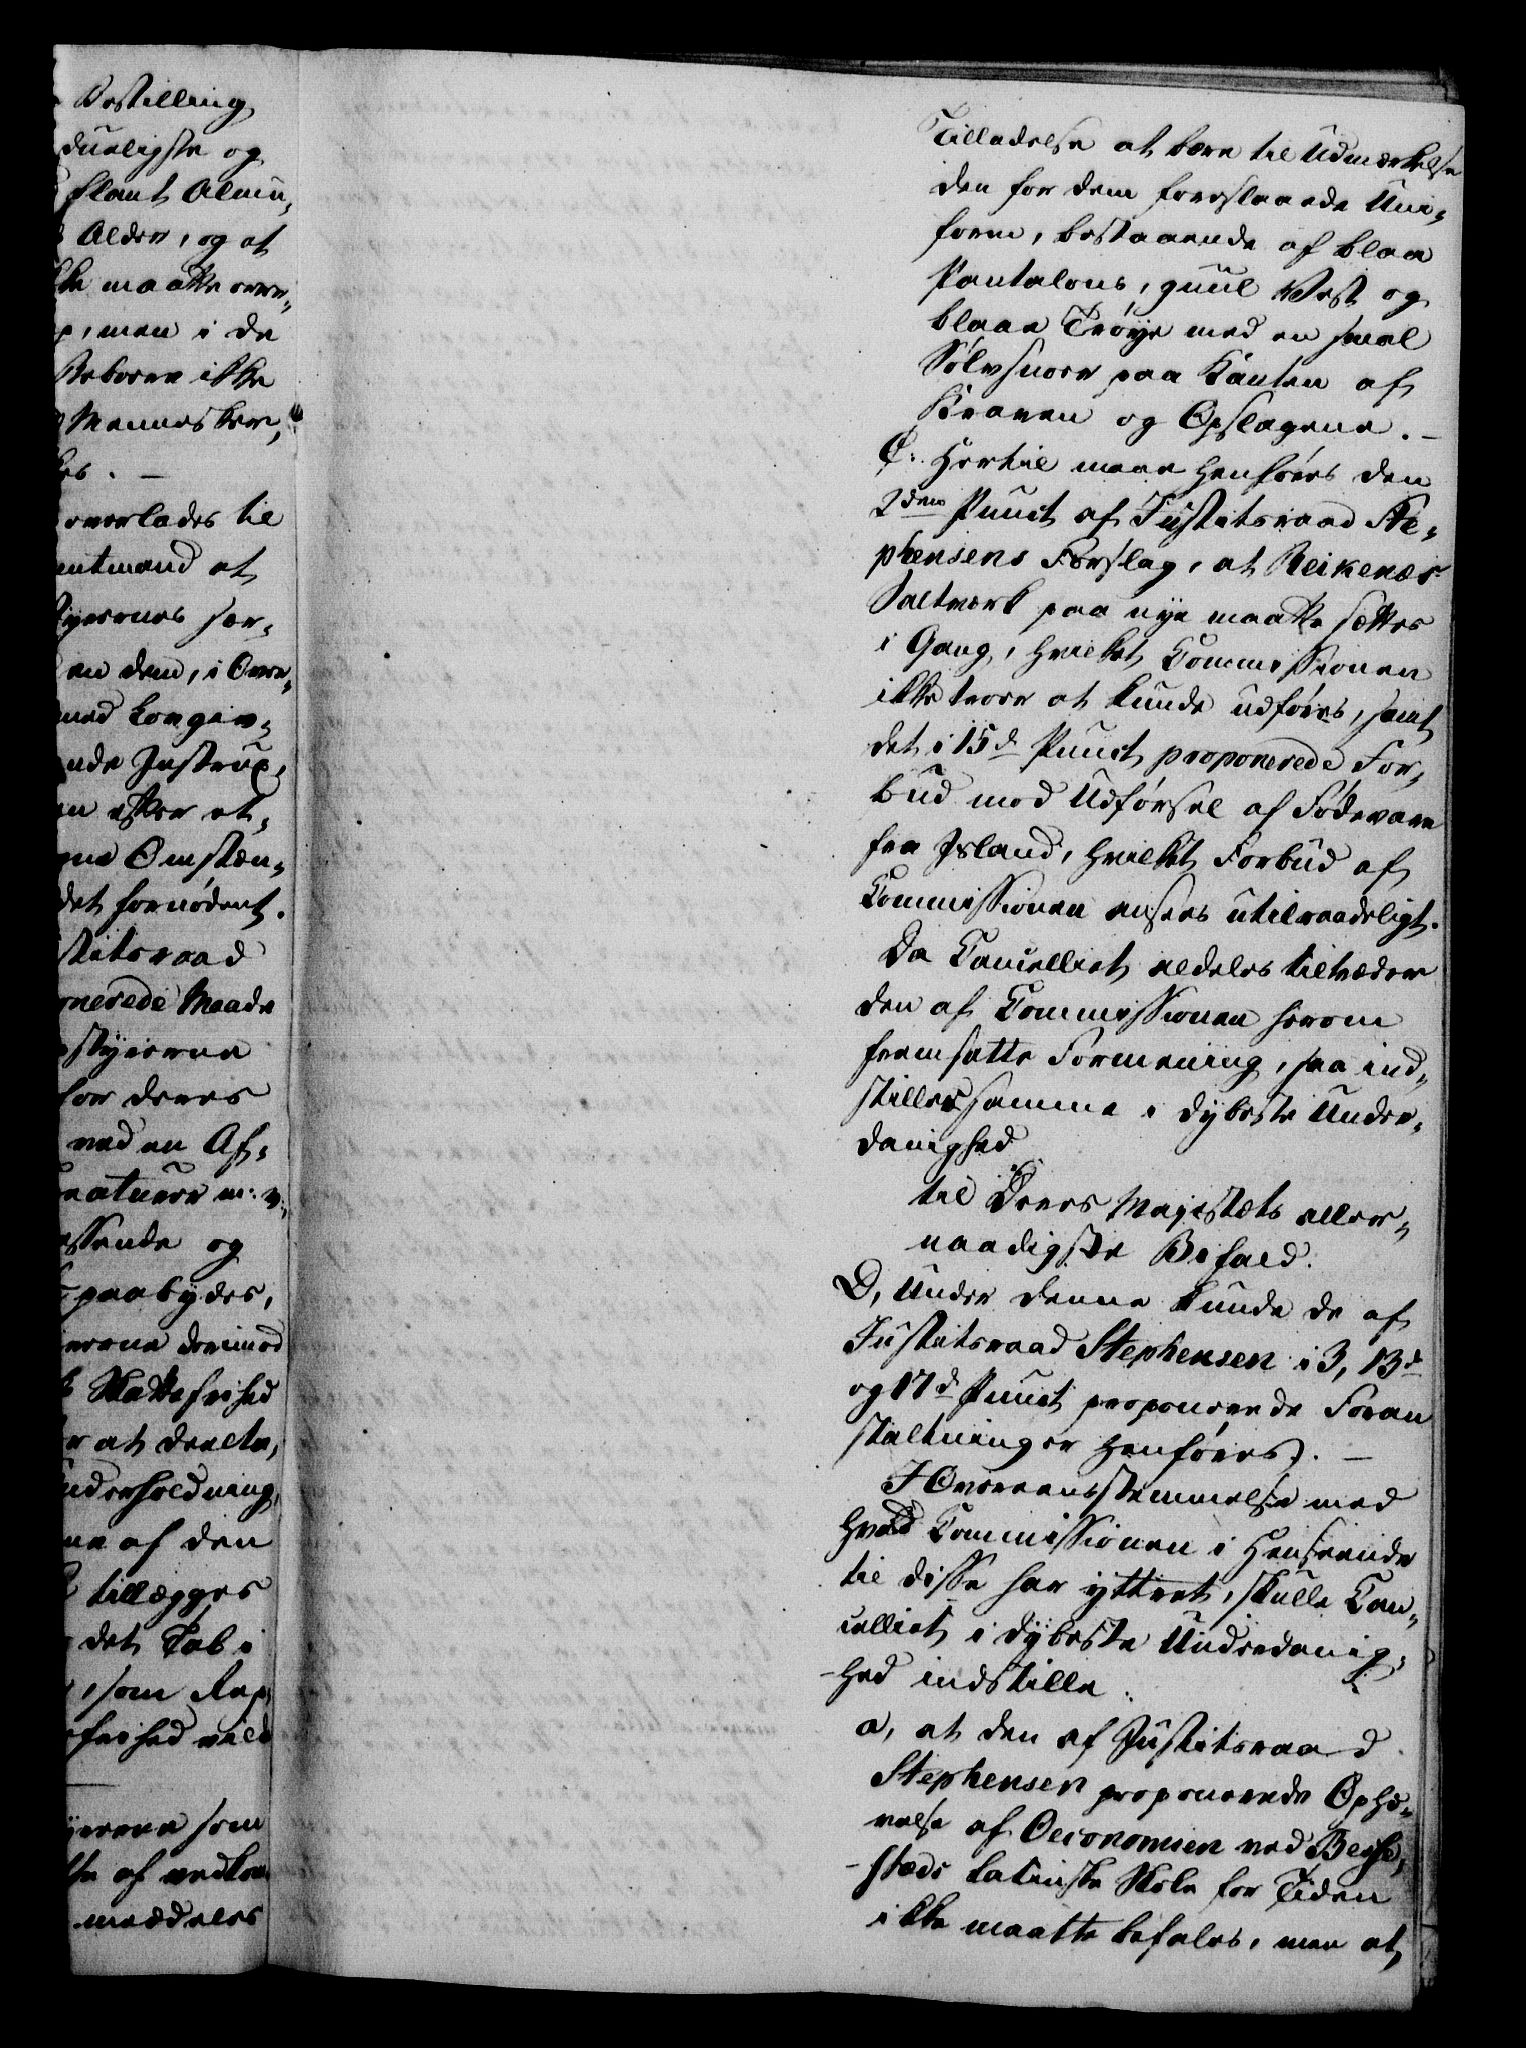 Bestilling
dueligste og
blant Almu-
Alder, og at
maatte over-
men i de
Beboere ikke
Mennesker,
overlades til
Amtmand at
en dem, i Over-
med Lovgiv-
Instrup-
efter et-
Omstæn-
det fornødent.
stitsraad
onerede Maade
styrerne
for deres
ved en Af-
m: v.
passende og
paabydes,
derimod
Skattefrihed
at deelte,
Underholdning,
af den
tillægges
det Tab i
, som Rep
frihed vild
som
af vedkom
meddeles
Tilladelse at bære til Udmærkelse
den for dem foreslaaede Uni-
form, bestaaende af blaa
Pantalons, guul Vest og
blaae Trøye med en smal
Sølvsnoer paa Kanten af
Kraven og Opslagene. –
C. Hertil maae henføres den
2den Punct af Justitsraad Ste-
phensens Forslag, at Reikenæs
Saltværk paa nye maatte sættes
i Gang, hvilket Commissionen
ikke troer at kunde udføres, samt
det i 15d Punct proponerede For-
bud mod Udførsel af Fødevare
fra Island, hvilket Forbud af
Commissionen ansees utilraadeligt.
Da Cancelliet aldeles tiltræder
den af Commissionen herom
fremsatte Formening, saa ind-
stilles samme i dybeste Under-
danighed
til Deres Majestæts aller-
naadigste Befald.
D, Under denne kunde de af
Justitsraad Stephensen i 3, 13d
og 17d Punct proponerede Foran
staltninger henføres. –
I Overeensstemmelse med
hvad Commissionen i Henseende
til disse har yttret, skulle Can-
celliet i dybeste Underdanig-
hed indstille.
a, at den af Justitsraad
Stephensen proponerede Ophæ-
velse af Oeconomien ved Besse-
stæds latinske Skole for Tiden
ikke maatte befales, men at